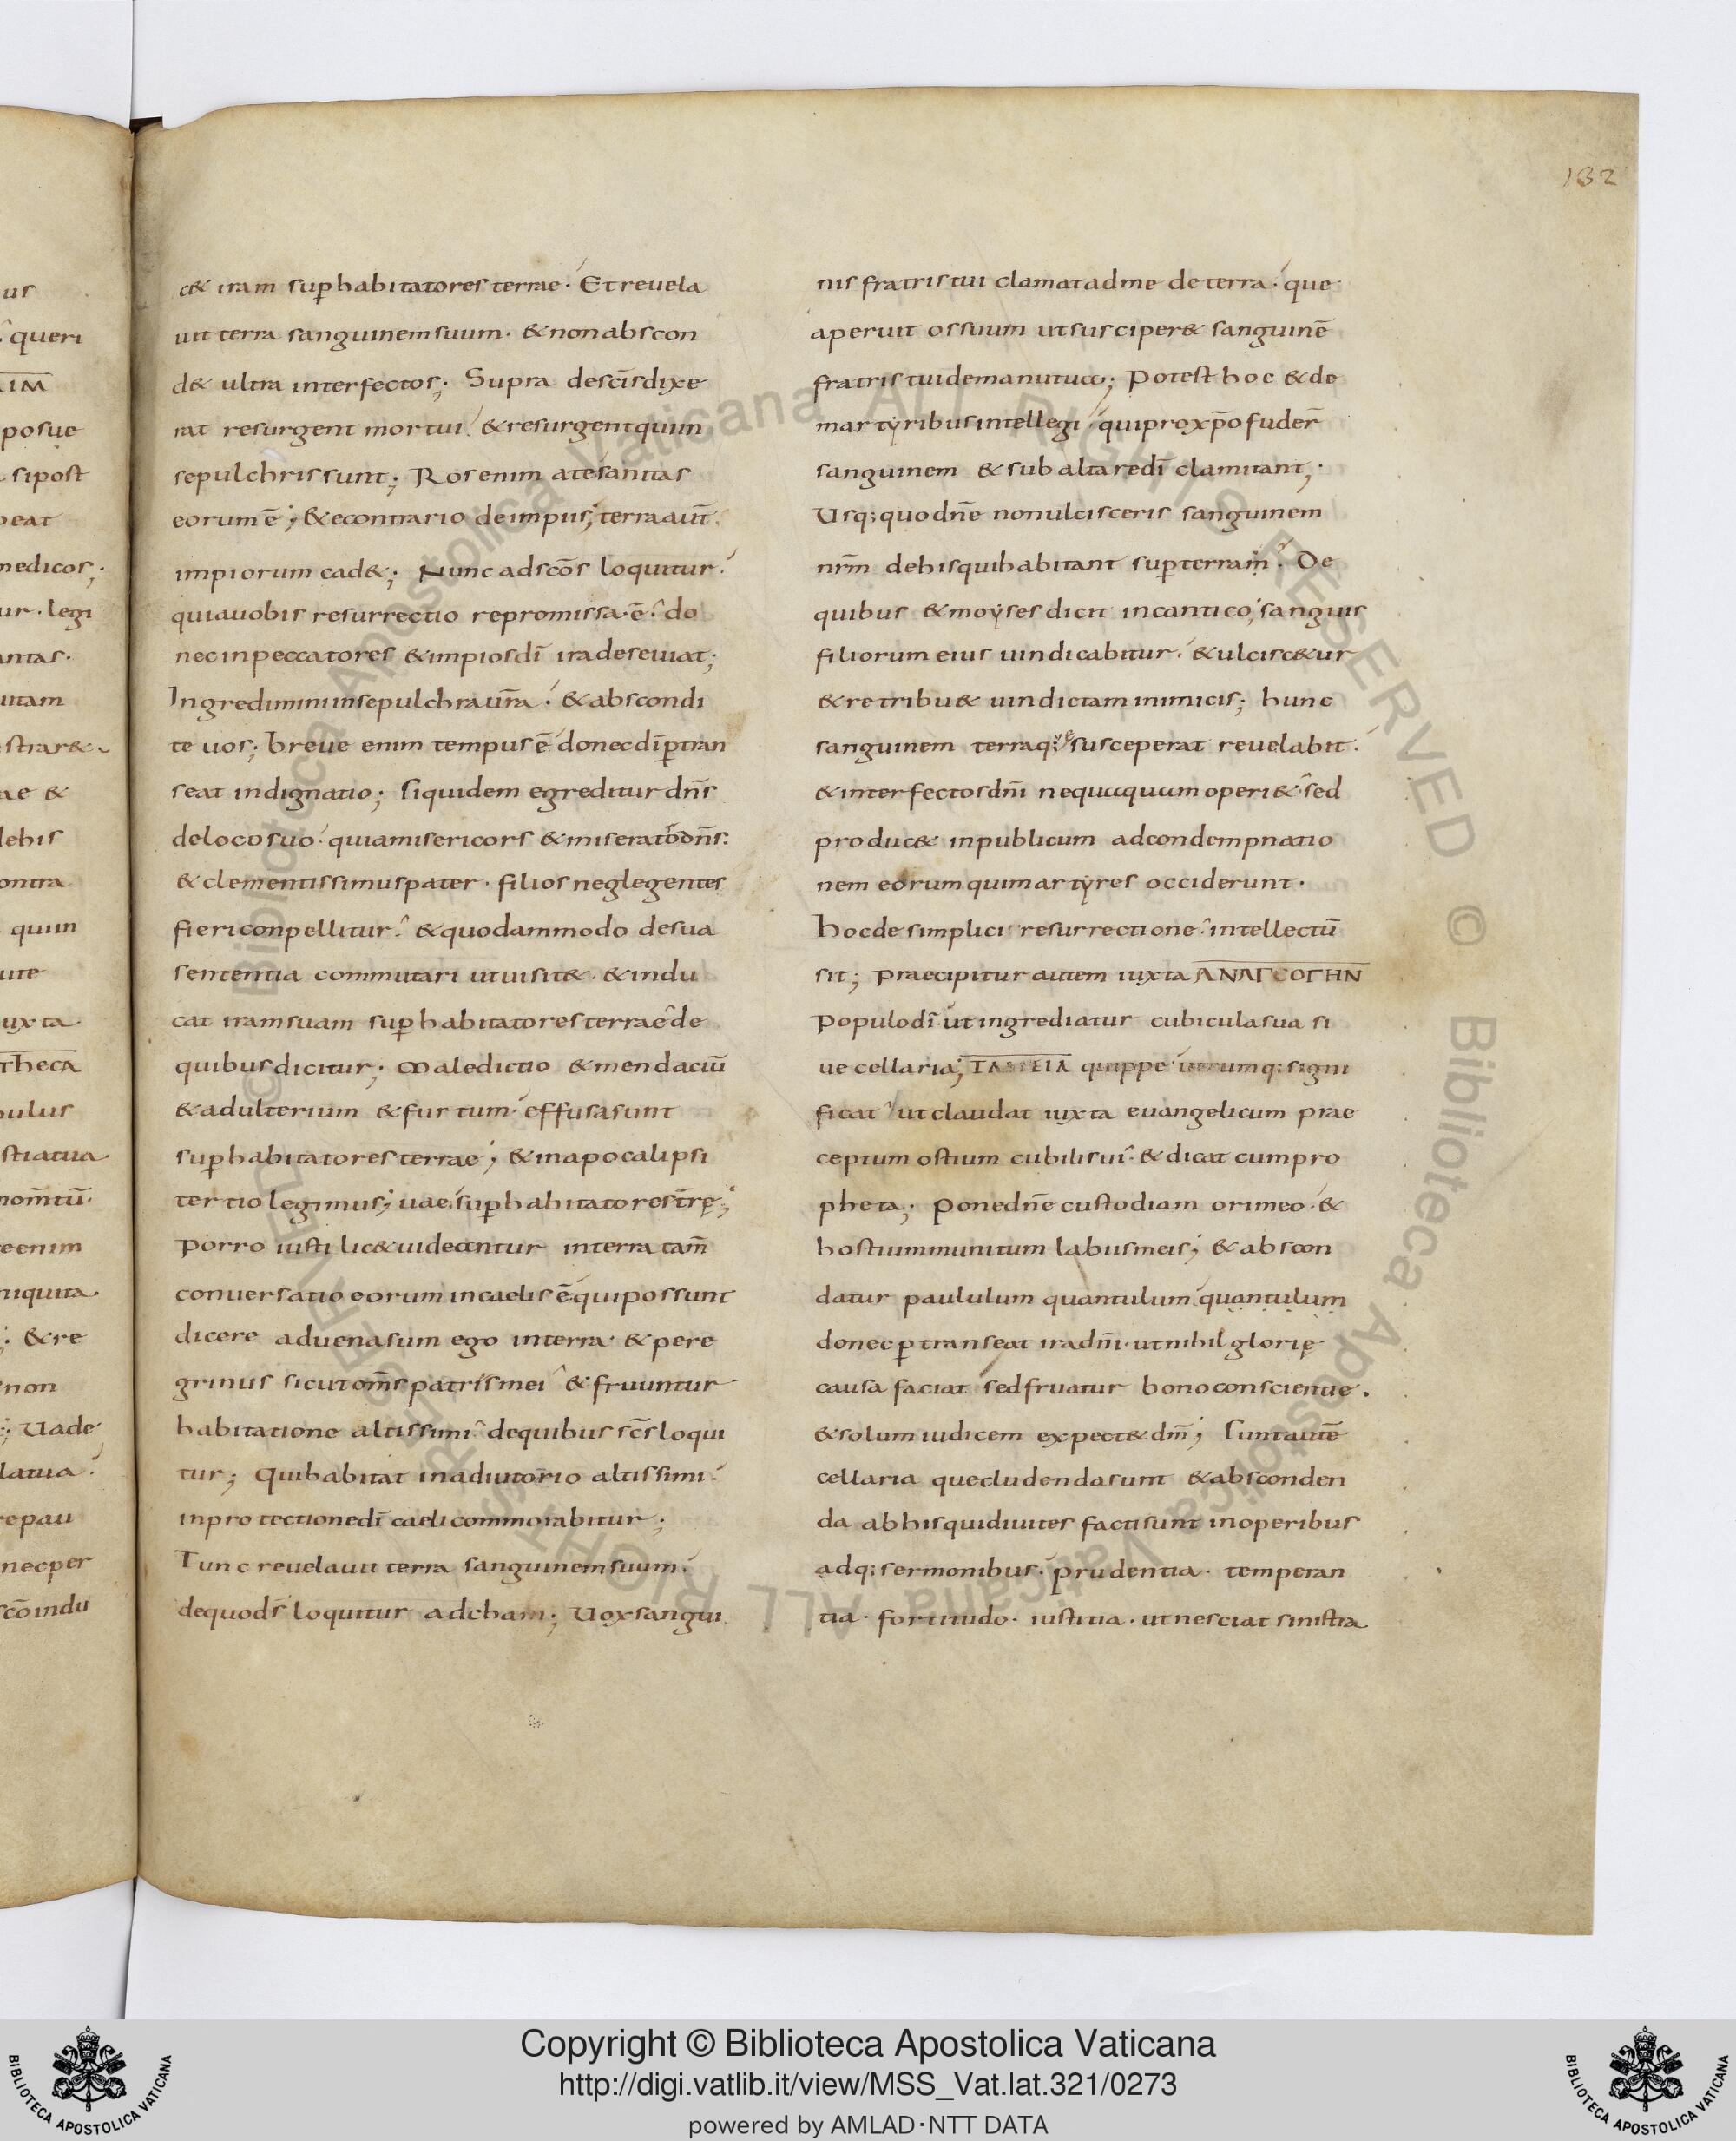 132
us
queri
posue
sipost
beat
medicos;
ur. legi
antas.
uitam
strar&
ae &
lebis
ontra
quiin
ute
iuxta.
theca
pulus
stiatua
nom̄tū.
eenim
niquita.
; &re
non
; Uade
latua.
repau
necper
scōindu
c& iram sup̄habitatores terrae. Et reuela
uit terra sanguinem suum. & non abscon
d& ultra interfectos; Supra desc̄is dixe
rat resurgent mortui. & resurgent qui in
sepulchris sunt; Ros enim ate sanitas
eorum ē; & econtrario de impiis; terra aut̄
impiorum cad&; Nunc ad scōs loquitur.
quia uobis resurrectio repromissa. ē. do
nec in peccatores & impios dī ira deseuiat;
Ingredimini in sepulchra ur̄a. & abscondi
te uos; breue enim tempus ē donec dī p̄tran
seat indignatio; siquidem egreditur dn̄s
de loco suo. quia misericors & miserator dn̄s.
& clementissimus pater. filios neglegentes
fieri conpellitur. & quodammodo de sua
sententia commutari ut uisit&. & indu
cat iram suam sup̄ habitatores terrae de
quibus dicitur; Maledictio & mendaciū
& adulterium & furtum. effusa sunt
sup̄ habitatores terrae; & in apocalipsi
tertio legimus; uae sup̄ habitatores tr̄ę;
Porro iusti lic& uideantur in terra tam̄
conuersatio eorum in caelis ē. qui possunt
dicere aduena sum ego in terra. & pere
grinus sicut om̄s patres mei & fruuntur
habitatione altissimi. de quibus sc̄s loqui
tur; Qui habitat in adiutorio altissimi.
in protectione dī caeli commorabitur;
Tunc reuelauit terra sanguinem suum.
de quo ds̄ loquitur ad cham; Uox sangui
nis fratris tui clamat ad me de terra. que
aperuit os suum ut susciper& sanguinē
fratris tui de manu tua; Potest hoc & de
martyribus intellegi qui pro xp̄o fuder̄
sanguinem & sub altare dī clamitant;
Usq; quo dn̄e non ulcisceris sanguinem
nr̄m de his qui habitant sup̄ terram. De
quibus & moyses dicit in cantico; sanguis
filiorum eius uindicabitur. & ulcisc&ur
& retribu& uindictam inimicis; hunc
sanguinem terra q; susceperat reuelabit.
& interfectos dn̄i nequaquam operi& sed
produc& in publicum ad condempnatio
nem eorum qui martyres occiderunt.
hoc de simplici resurrectione. intellectū
sit; Praecipitur autem iuxta ΑΝΑΓCΟΓΗΝ
Populo dī ut ingrediatur cubicula sua si
ue cellaria; quippe utrumq; signi
ficat ut claudat iuxta euangelicum prae
ceptum ostium cubilis sui. & dicat cum pro
pheta; Pone dn̄e custodiam ori meo. &
hostium munitum labiis meis; & abscon
datur paululum quantulum quantulum
donec p̄transeat ira dn̄i. ut nihil glorię
causa faciat sed fruatur bono conscientie.
& solum iudicem expect& dm̄; Sunt autē
cellaria que cludenda sunt & absconden
da ab his qui diuites facti sunt in operibus
adq; sermonibus. prudentia. temperan
tia. fortitudo. iustitia. ut nesciat sinistra
© Biblioteca Apostolica Vaticana ALL RIGHTS RESERVED © Biblioteca Apostolica Vaticana ALL RIGHTS RESERVED
BIBLIOTECA APOSTOLICA VATICANA
Copyright © Biblioteca Apostolica Vaticana
http://digi.vatlib.it/view/MSS_Vat.lat.321/0273
powered by AMLAD·NTT DATA
BIBLIOTECA APOSTOLICA VATICANA